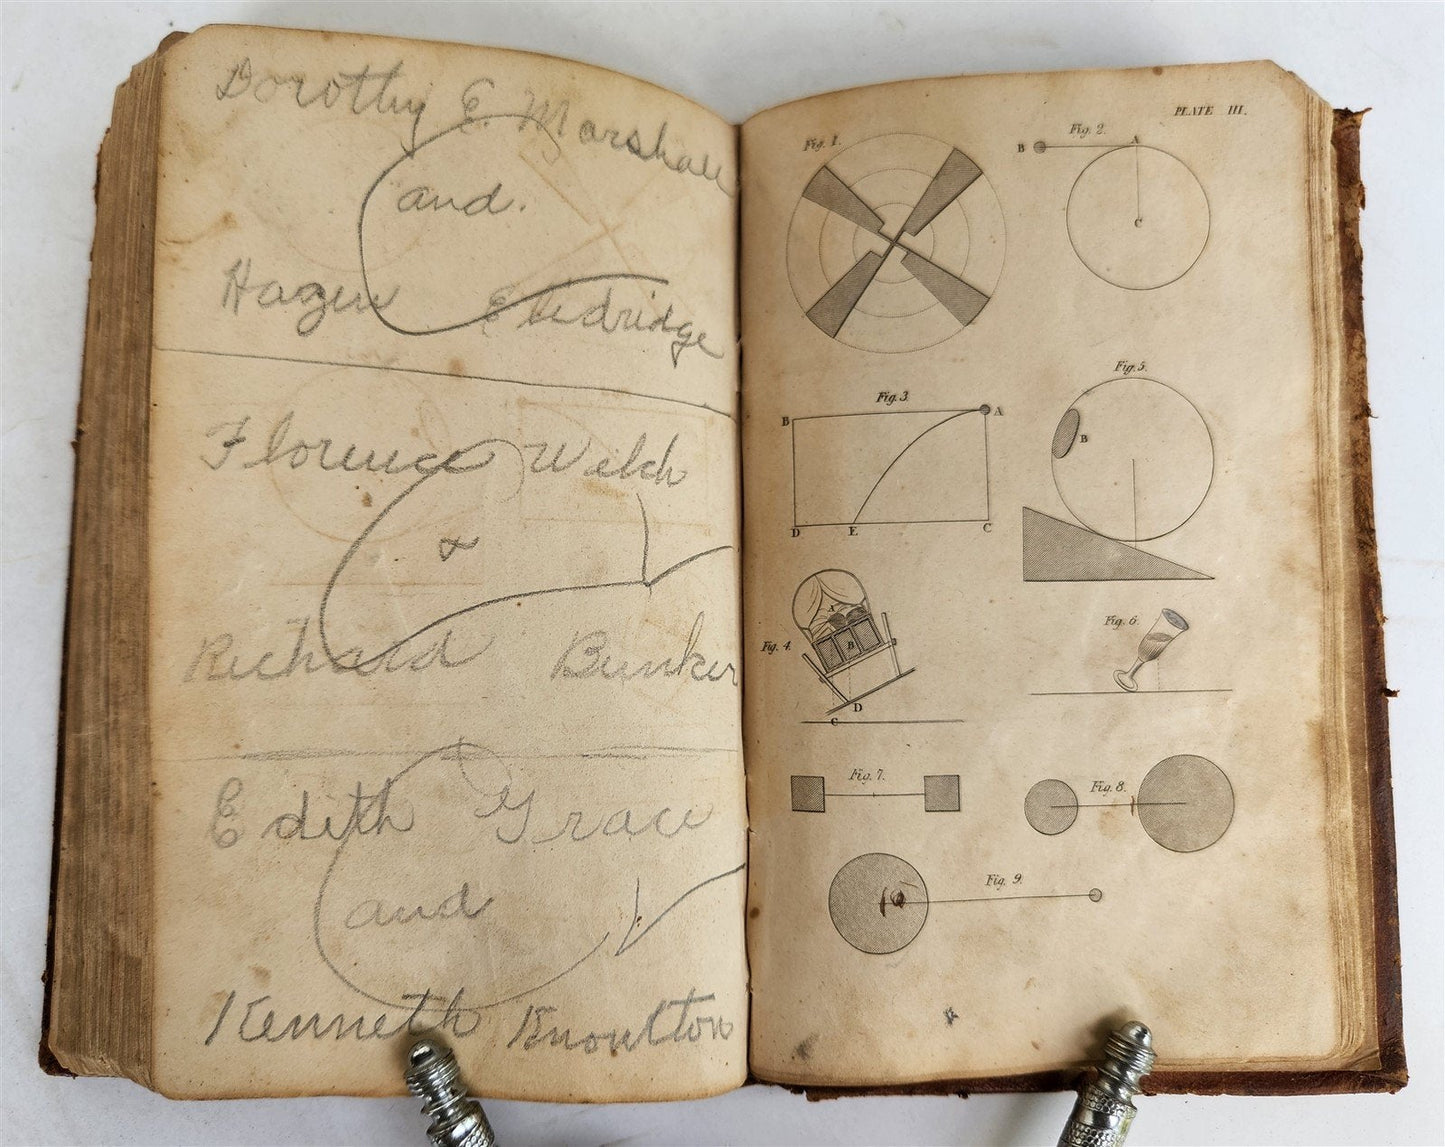 Dorothy E. Marshall
and.
Hazen Eldridge
Florence Welch
&
Richard Bunker
Edith Grace
and
Kenneth Knoulton
PLATE III.
Fig. 1.
Fig. 2.
B A
C
Fig. 3.
B A
D E C
Fig. 5.
B
Fig. 4.
A
B
D
C
Fig. 6.
Fig. 7.
Fig. 8.
Fig. 9.